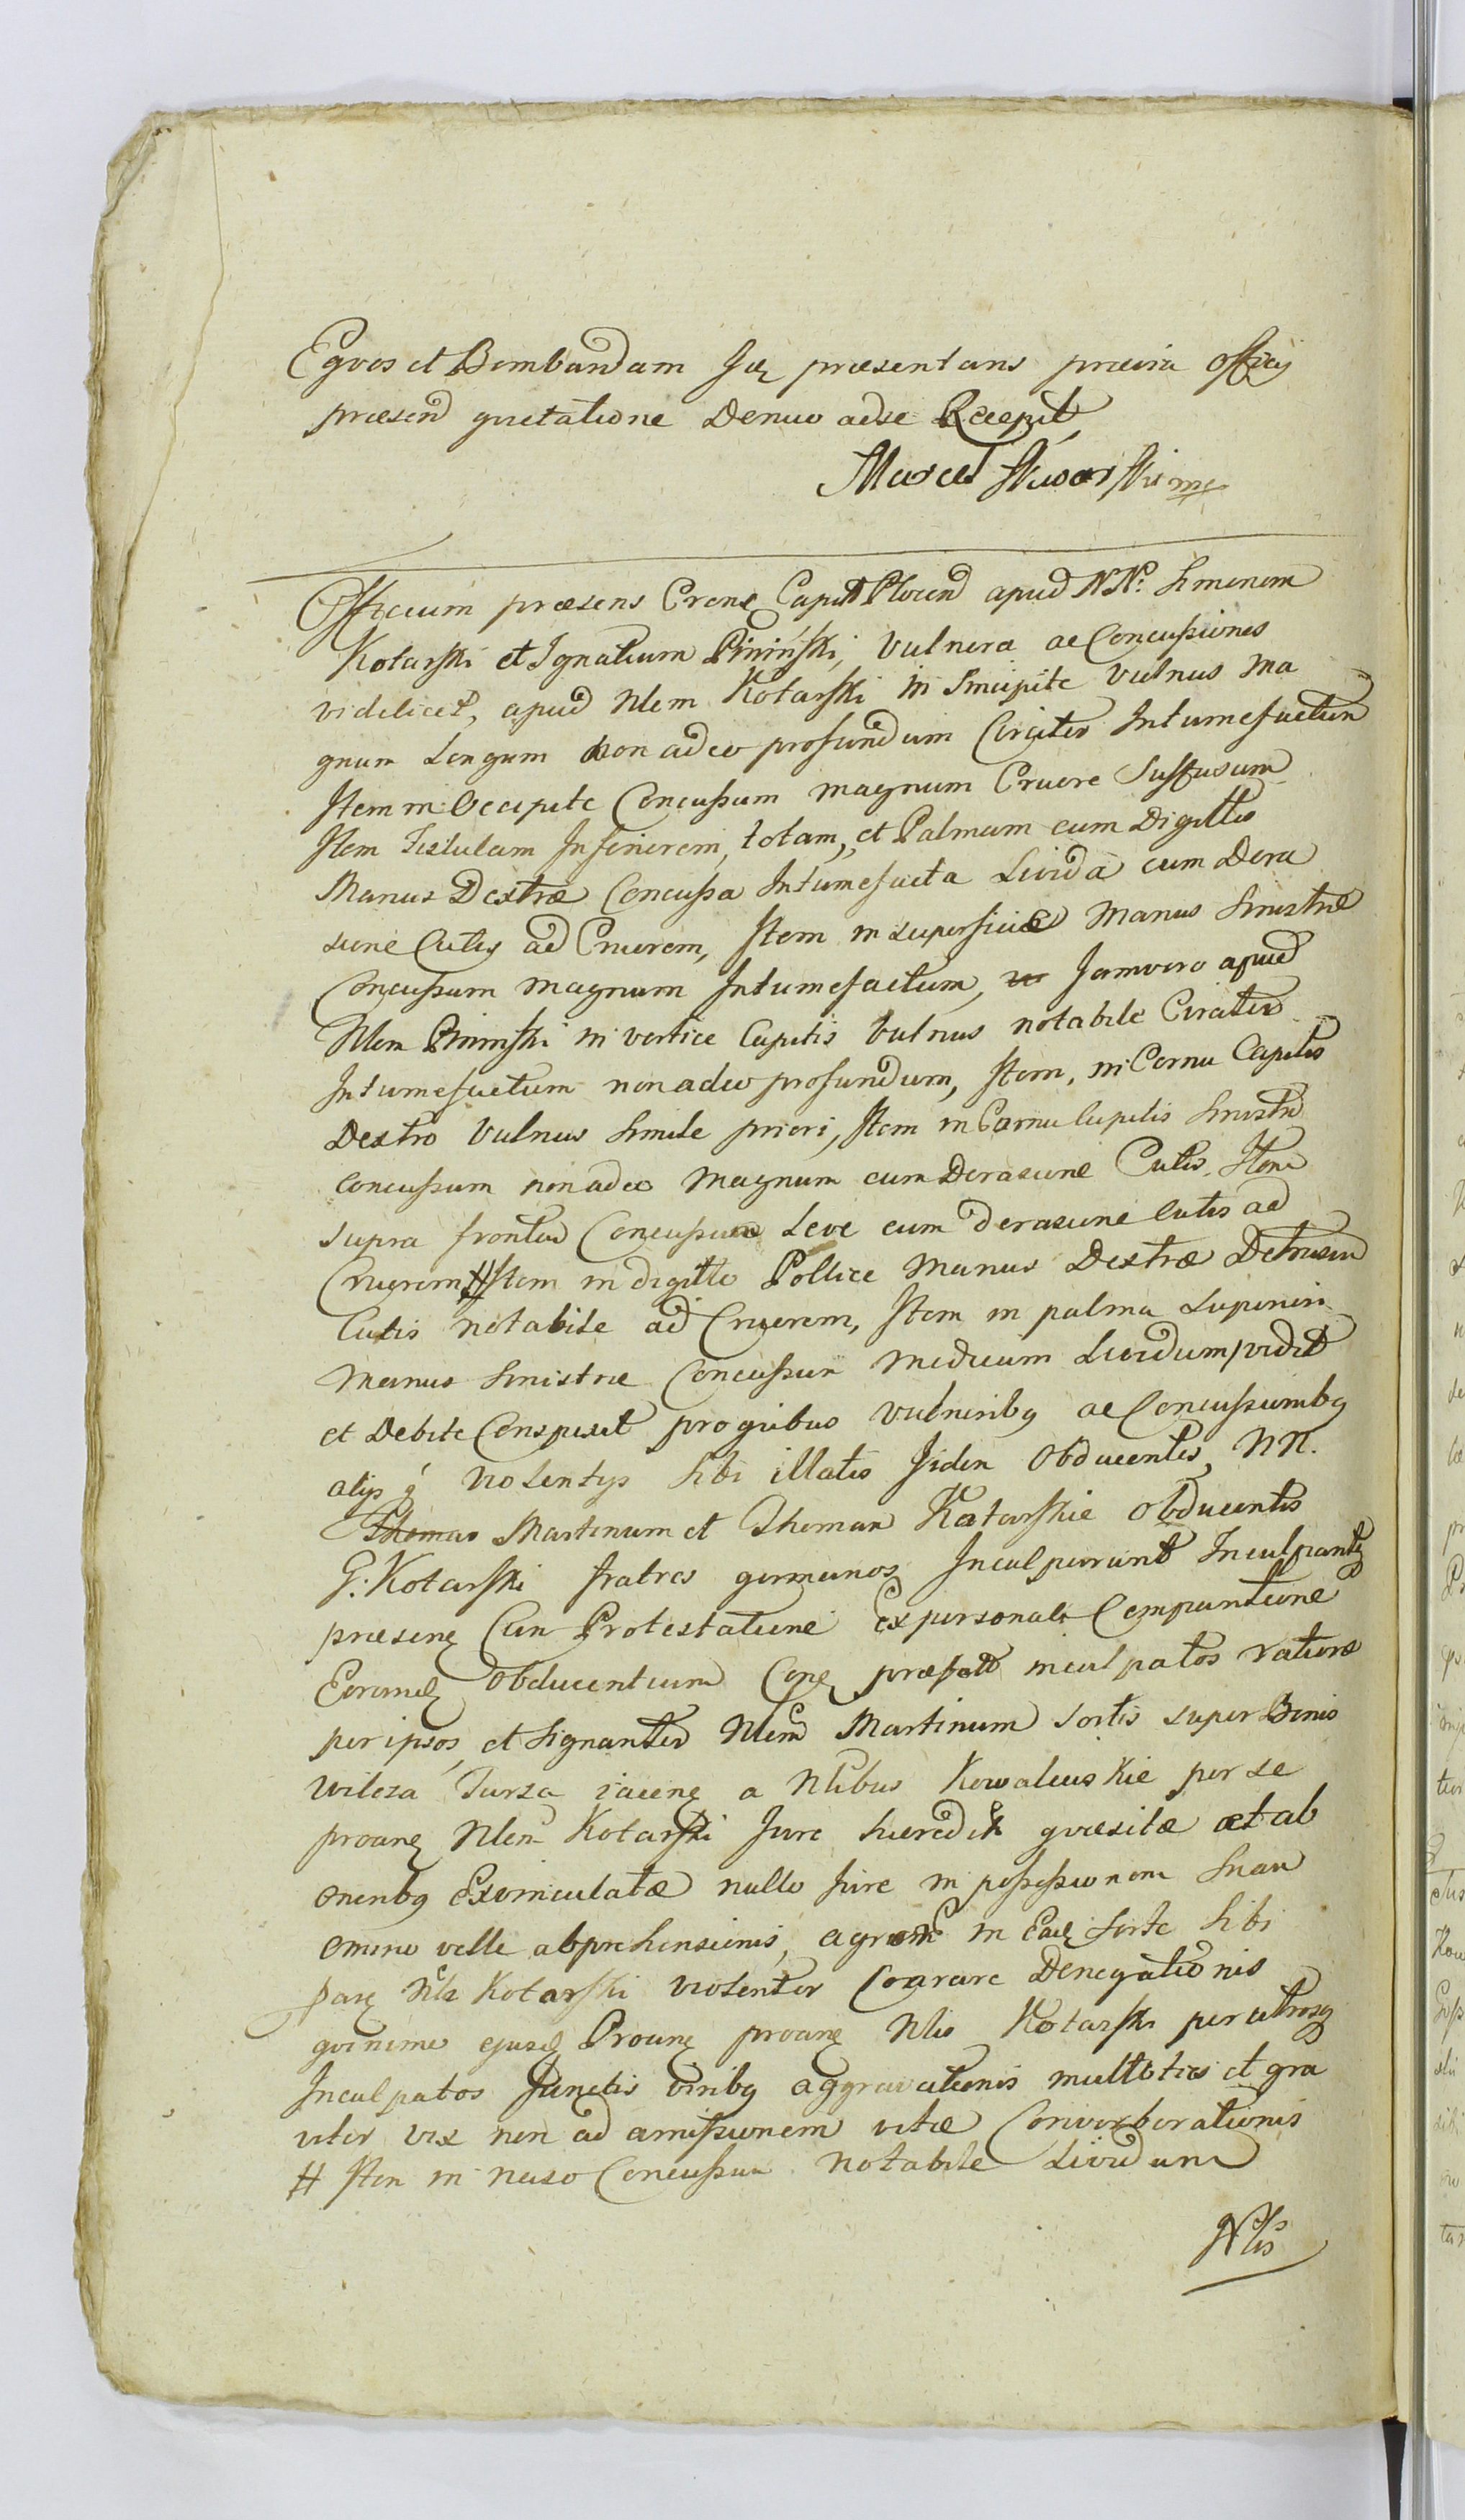 Eqvos et Bombardam Jdē praesentans praevia Officij
praesen quietatione denuo ad se Recepit
Marcel mp
Officium praesens Crens Capit Plocen apud NN: Simonem
Kotarski et Ignatium Pniński, vulnera ac Concussiones
videlicet, apud Nlem Kotarski in Sincipite vulnus ma
gnum longum non adeo profundum Circiter Intumefactum
Item in Occipite Concussum magnum Cruore Suffusum
Item Fistulam Inferiorem, totam, et Palmam cum Digittis
Manus Dextrae Concussa Intumefacta Livida cum Dera
sione Cutis ad Cruorem, Item in superficie Manus Sinistrae
Concussum magnum Intumefactum, Jamvero apud
Nlem Pniński in vertice Capitis vulnus notabile Circiter
Intumefactum non adeo profundum, Item, in Cornu Capitis
Dextro vulnus simile priori, Item in Cornu Capitis Sinistro
concussum non adeo magnum cum Derasione Cutis, Item
supra frontem Concussum Leve cum derasione cutis ad
Cruorem # Item in digitto Pollice Manus Dextrae Detrusum
Cutis notabile ad Cruorem, Item in palma superiori
Manus Sinistrae Concussum medium Lividum vidit
et Debite Conspexit pro qvibus vulneribq ac Concussionibq
alijs q violentijs sibi illatis Jidem Obducentes, NN.
Thomas Martinum et Thomam Kotarskie obducentis
G: Kotarski fratres germanos Inculpaverunt Inculpantq
praesenq Cum Protestatione Ex personali Compuntione
Eoremdq Obducentium Conq praefatt inculpatos ratione
per ipsos, et Signanter Nlem Martinum sortis super Bonis
Wilcza Turza jacenq a Nlibus Kowalewskie per se
proanq Nlem Kotarski Jure haeredit qvaesitae et ab
omnibq Exvinculatae nullo jure in possessionem Suam
omine velle abprehensionis, agrum in Eadq Sorte Sibi
parq Nli Kotarski violenter Coarare Denegationis
qvinimo ejusdq Proanq proanq Nlis Kotarski per utrosq
Inculpatos Junctis viribq aggravationis multoties et gra
viter vix non ad amissionem vitae Converberationis
# Item in naso Concussum notabile Lividum
Nlis